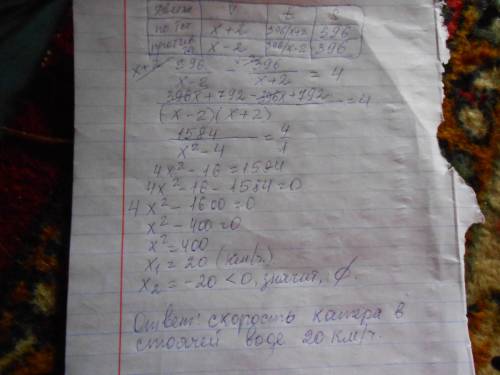 V t S
по теч x+2 396/x+2 396
против x-2 396/x-2 396
396/(x-2) - 396/(x+2) = 4
(396x+792-396x+792)/((x-2)(x+2)) = 4
1584/(x²-4) = 4/1
4x²-16=1584
4x²-16-1584=0
4x²-1600=0
x²-400=0
x²=400
x₁=20 (км/ч)
x₂=-20<0, значит, ∅.
Ответ: скорость катера в
стоячей воде 20 км/ч.